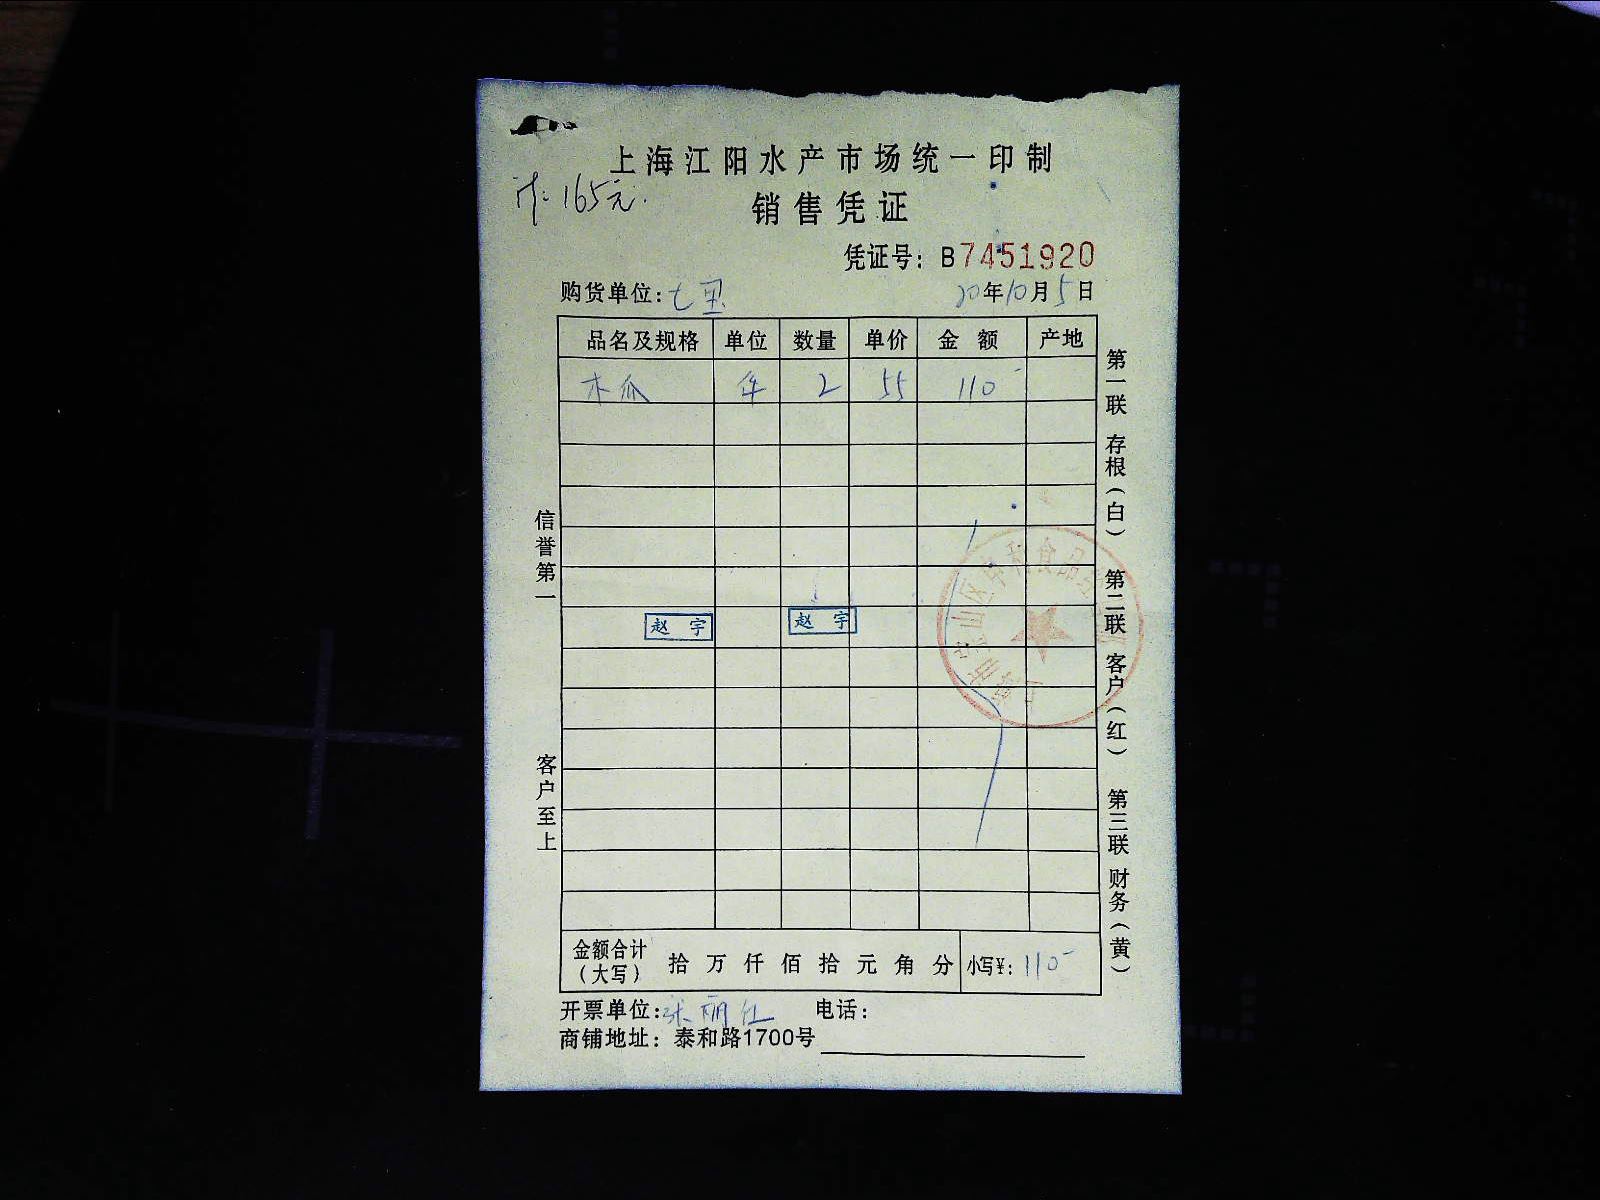 上海江阳水产市场统一印制
计:165元.
销售凭证
凭证号：B7451920
购货单位：七里
20年10月5日
品名及规格 单位 数量 单价 金额 产地
木瓜 件 2 55 110-
赵宇 赵宇
山区 和食品
金额合计（大写） 拾 万 仟 佰 拾 元 角 分 小写￥：110-
开票单位：张丽 电话：
商铺地址：泰和路1700号
信誉第一
客户至上
第一联 存根（白） 第二联 客户（红） 第三联 财务（黄）